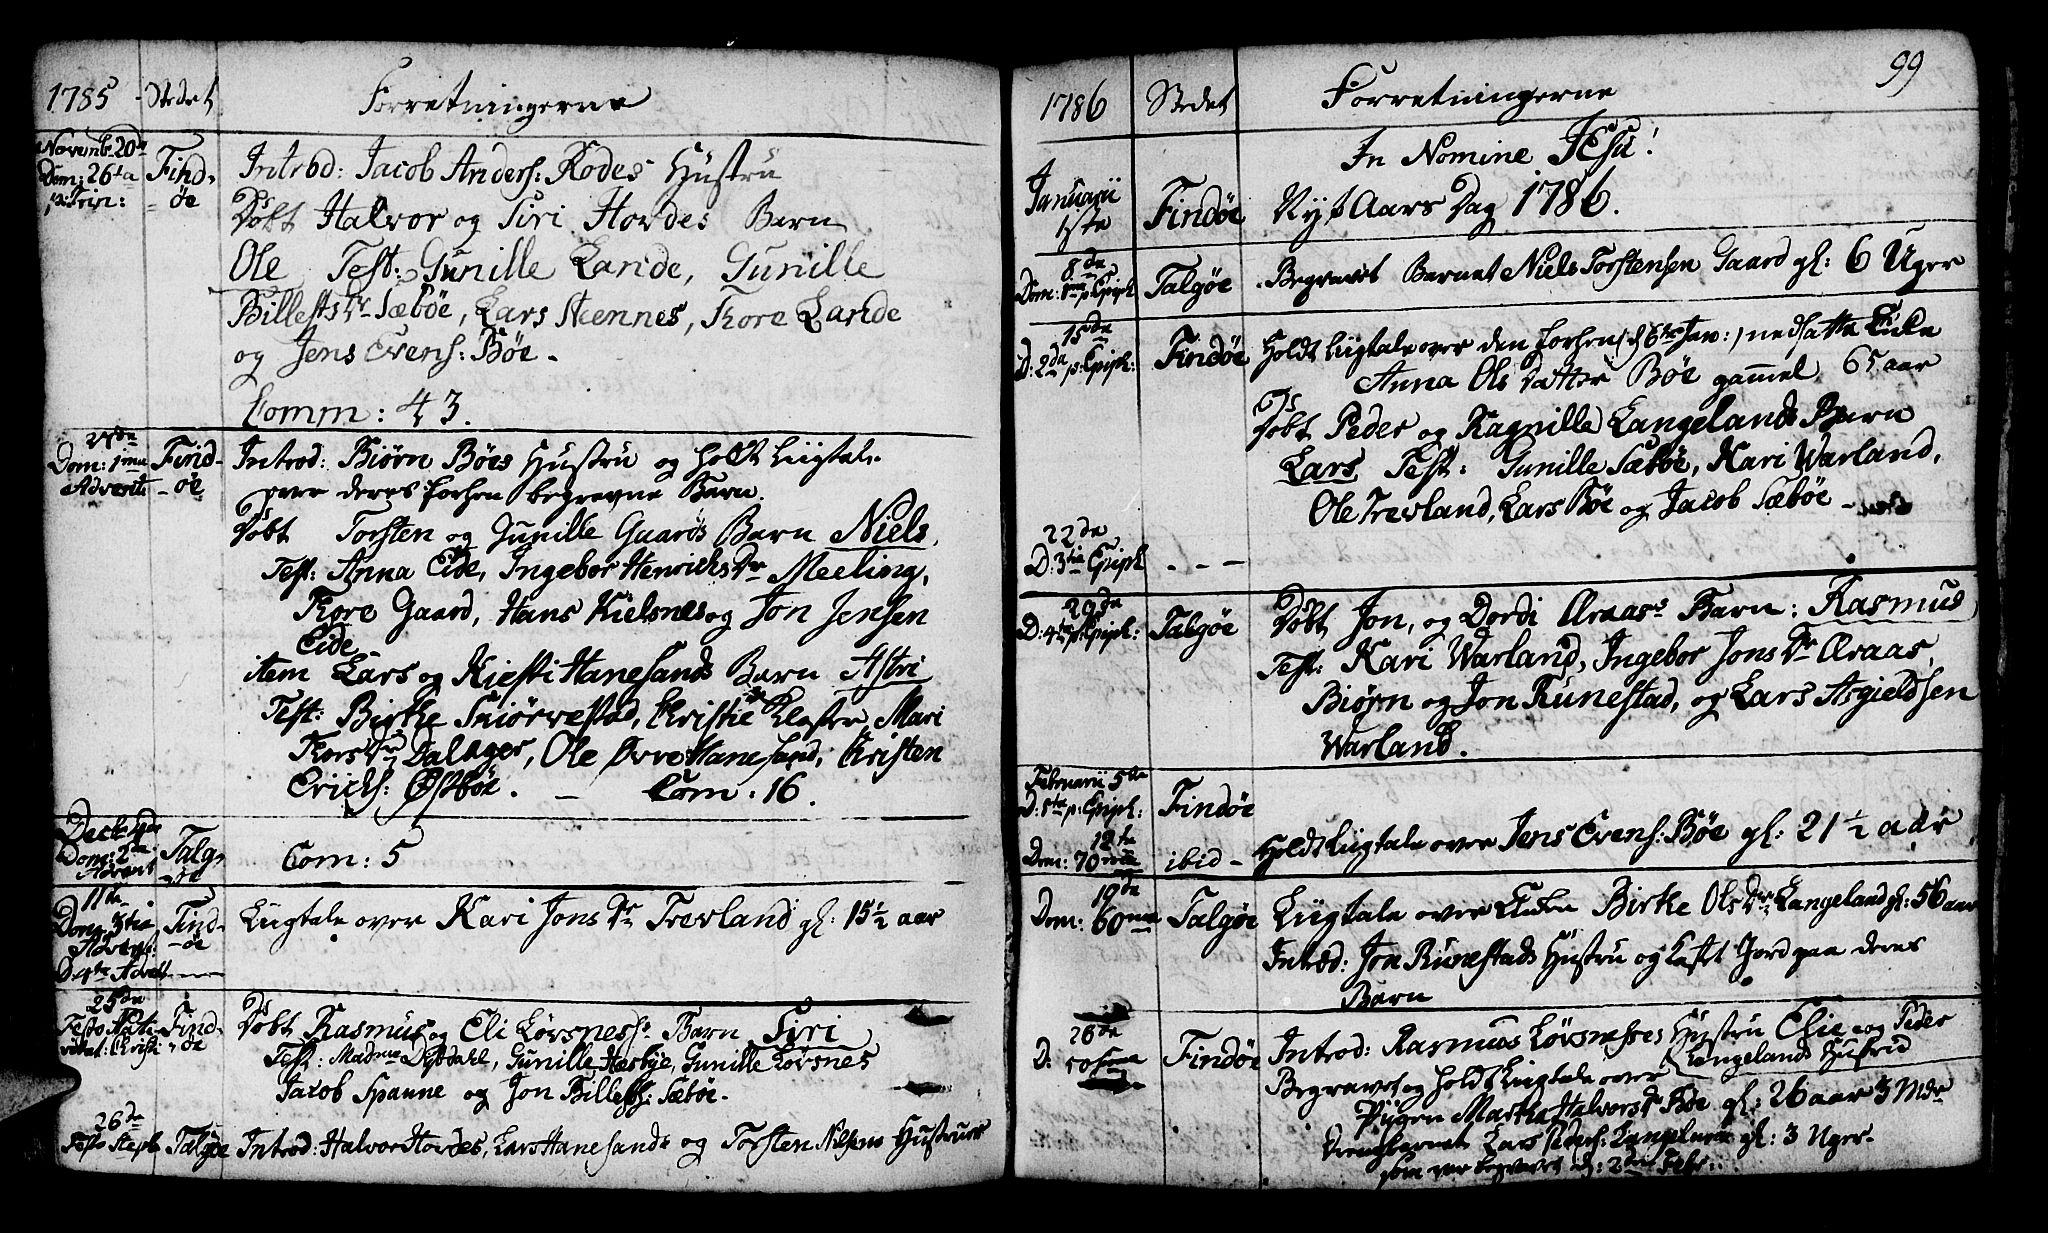 1785 Stedet Forretningerne
Novemb: 20de Find- Introd: Jacob Anders: Rodes Hustru
Dom: 26ta öe
p: Trin:
Ds
Döbt Halvor og Siri Hovdes Barn
Ole Test: Gunille Lande, Gunille
Billestsdr Sæböe, Lars Neennes, Tore Lande
og Jens Evens: Böe.
Comm: 43.
27de
Dom: 1ma Find- Introd: Biörn Böes Hustru og holdt Liigtale
Advent öe over deres forhen begravne Barn.
Ds
Döbt Torsten og Gunille Gaards Barn Niels,
Test: Anna Eide, Ingebor Henrichsdr Meeling,
Tore Gaard, Hans Kielsnes og Jon Jensen
Eide
item Lars og Kiesti Hanesands Barn Astri
Test: Birke Sniörrestad, Christie Kloster, Mari
Torsdr Dalager, Ole Övre Hanesand, Kristen
Ericks: Östböe. — Com: 16.
Decbr 4de
Dom: 2da Talg- Com: 5
Advent öe
11te
Dom: 3tia Find- Liigtale over Kari Jonsdr Trevland gl: 15½ aar
Advent: öe
D: 4ta Advent
25de
Festo Nati- Find- Döbt Rasmus og Eli Lövsness: Barn Siri
vitat: Christi öe Test: Madme Dysdahl, Gunille Hesbye, Gunille Lövsnes
Jacob Spanne og Jon Billests: Sæböe.
26de
Festo Steph Talgöe Introd: Halvor Hovdes, Lars Hanesands og Torsten Nilsens Hustruer
99
1786 Stedet Forretningerne
In Nomine Jesu!
Januarii
1ste Findöe Nyt Aars Dag 1786.
8de
Dom: 1ma p: Epiph Talgöe Begravet Barnet Niels Torstensen Gaard gl: 6 Uger
15de
D: 2da p: Epiph: Findöe Holdt Liigtale over den forhen (d 6te Jan:) nedsatte Enke
Anna Olsdatter Böe gammel 65 aar
Ds
Döbt Peder og Ragnille Langelands Barn
Lars Test: Gunille Sæböe, Kari Warland,
Ole Trevland, Lars Böe og Jacob Sæböe
22de
D: 3tia Epiph - - -
29de
D: 4ta p: Epiph: Talgöe Döbt Jon, og Dordi Araas Barn: Rasmus
Test: Kari Warland, Ingebor Jonsdr Araas,
Biörn og Jon Runestad, og Lars Asgieldsen
Warland.
Februarii 5te
D: 5ta p: Epiph: Findöe
12te
Dom: 70mæ ibid - Holdt Liigtale over Jens Evens: Böe gl: 21½ aar
19de
Dom: 60mæ Talgöe Liigtale over Enken Birke Olsdr Langeland gl: 56 aar
Introd: Jon Runestads Hustru og kastet Jord paa deres
Barn
26de
D: 50mæ Findöe Introd: Rasmus Lövsneses Hustru Elie og Peder
Langelands Hustrue
Begravet og holdt Liigtale over
Piigen Martha Halvorsdr Böe gl: 26 aar 3 Mdr
Lars Peders: Langeland gl: 3 Uger.
som var begravet d: 2den Febr: